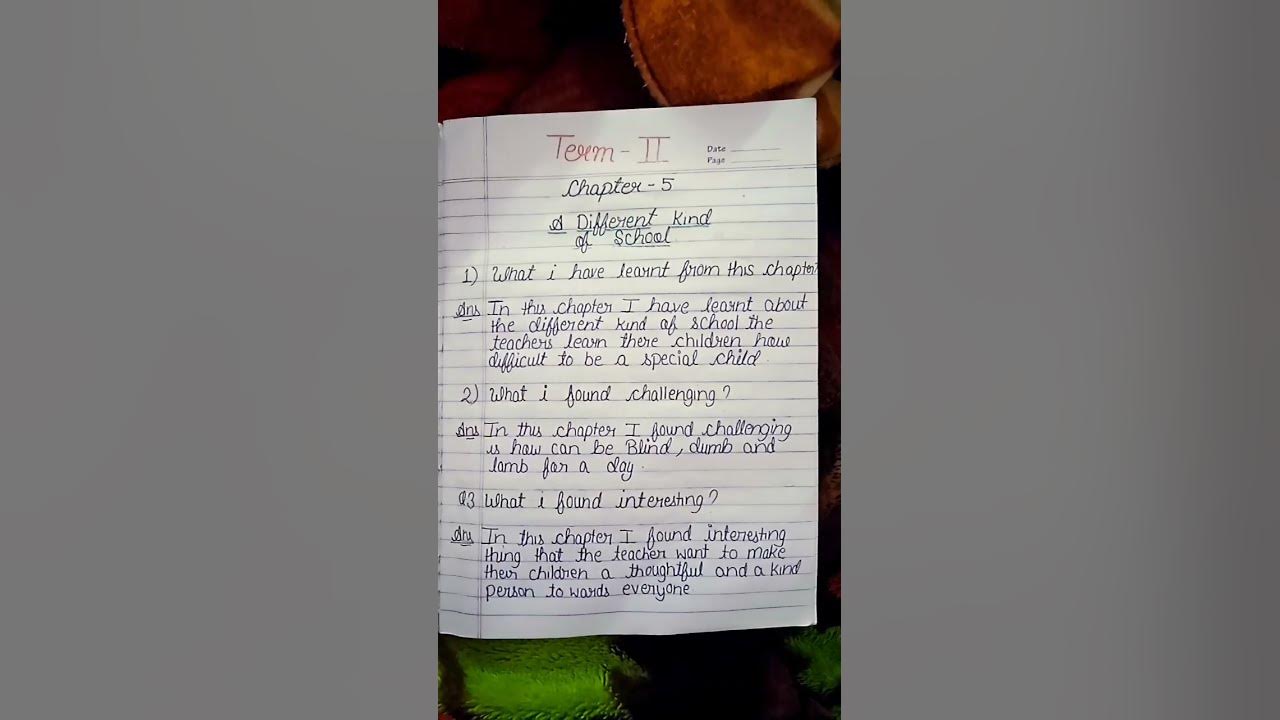 Term - II
Date
Page
Chapter - 5
A Different Kind
of School
1) What i have learnt from this chapter?
Ans In this chapter I have learnt about
the different kind of school the
teachers learn there children how
difficult to be a special child.
2) What i found challenging?
Ans In this chapter I found challenging
is how can be Blind, dumb and
lamb for a day.
Q3 What i found interesting?
Ans In this chapter I found interesting
thing that the teacher want to make
their children a thoughtful and a kind
person to wards everyone